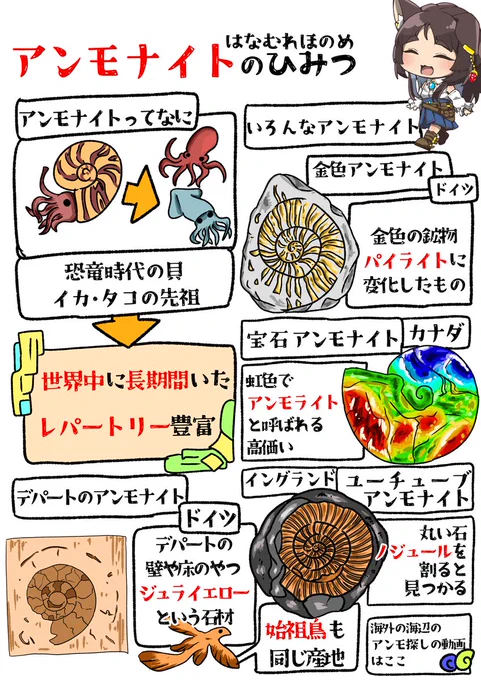 はなむれほのめ
アンモナイトのひみつ
アンモナイトってなに
恐竜時代の貝
イカ・タコの先祖
世界中に長期間いた
レパートリー豊富
いろんなアンモナイト
金色アンモナイト
ドイツ
金色の鉱物
パイライトに
変化したもの
宝石アンモナイト
カナダ
虹色で
アンモライト
と呼ばれる
高価い
デパートのアンモナイト
ドイツ
デパートの
壁や床のやつ
ジュライエロー
という石材
始祖鳥も
同じ産地
イングランド
ユーチューブ
アンモナイト
丸い石
ノジュールを
割ると
見つかる
海外の海辺の
アンモ探しの動画
はここ